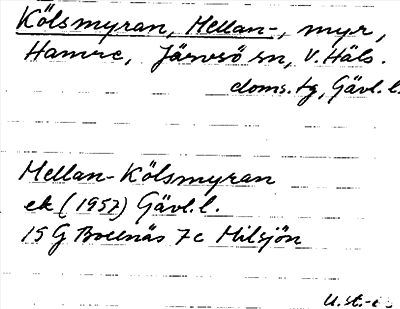 Kölsmyran, Mellan-, myr,
Hamre, Järvsö sn, V. Häls.
doms. tg, Gävl. l.
Mellan-Kölsmyran
ek (1957) Gävl. l.
15 G Bollnäs 7c Milsjön
U. st.-